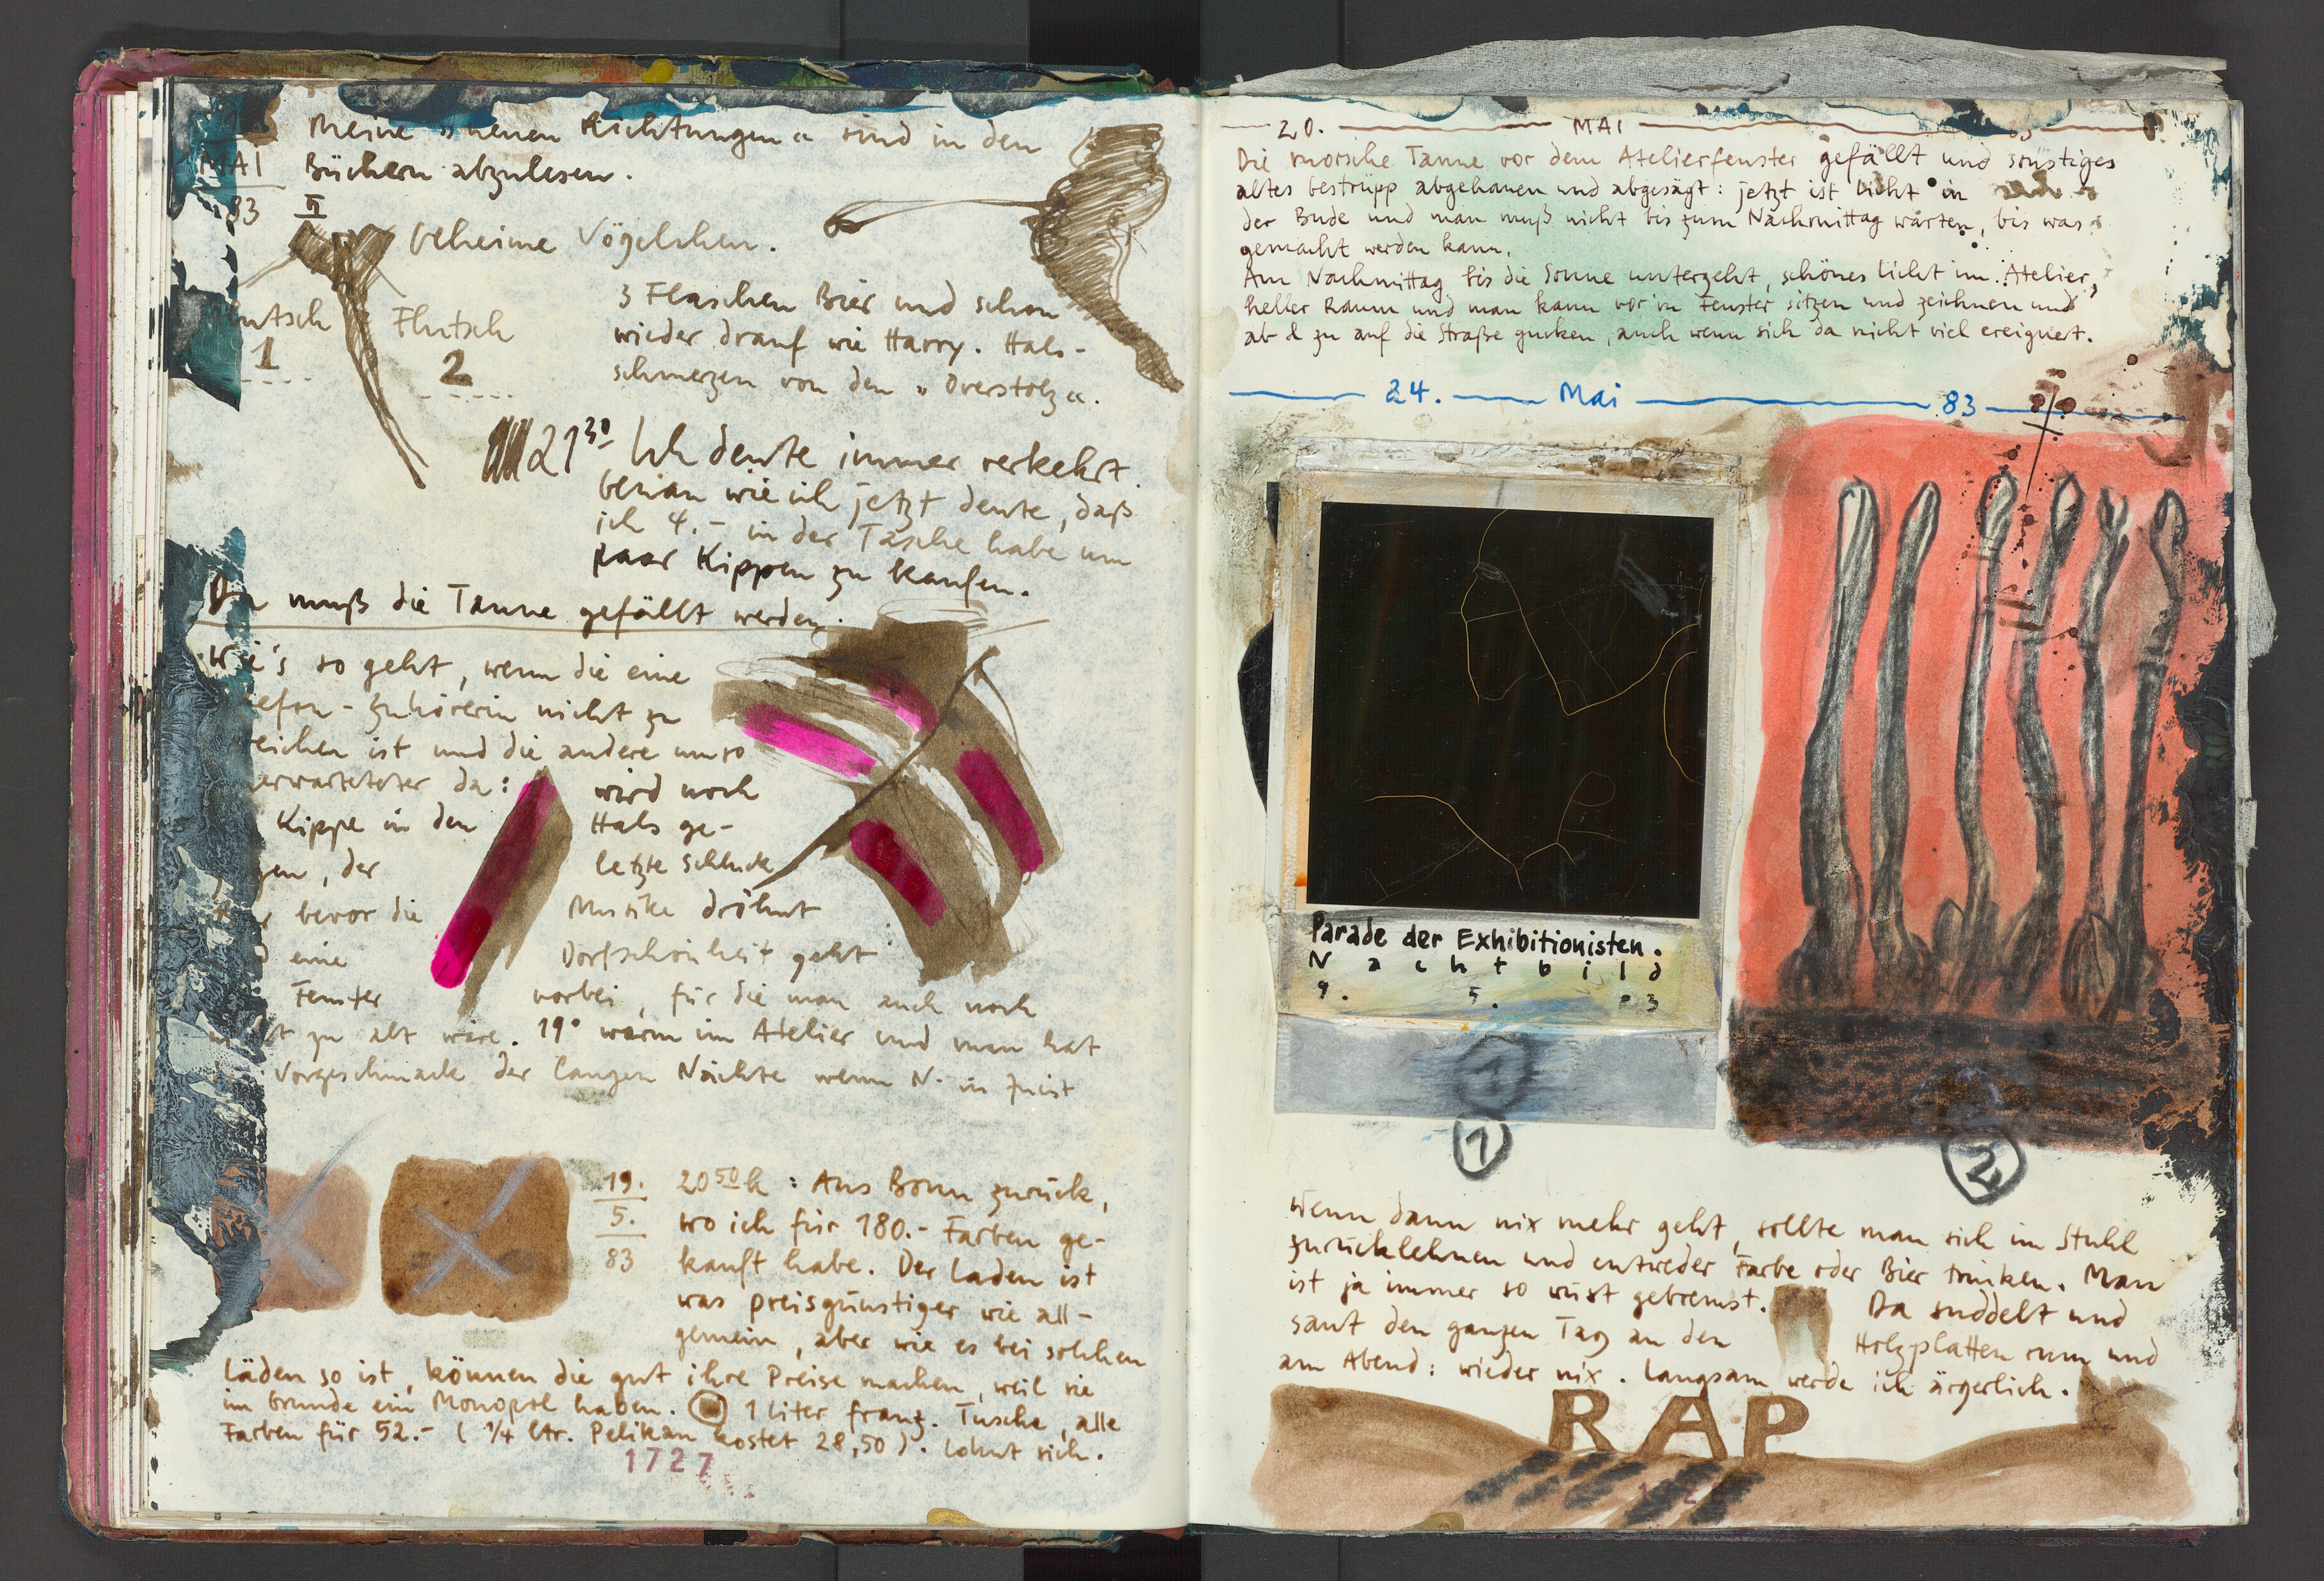 Meine »neuen Richtungen« sind in den
MAI
Büchern abzulesen.
83
II
Geheime Vögelchen.
Flutsch
1
Flutsch
2
3 Flaschen Bier und schon
wieder drauf wie Harry. Hals-
schmerzen von den »Overstolz«.
21 30 Ich denke immer verkehrt.
Genau wie ich jetzt denke, daß
ich 4.- in der Tasche habe um
paar Kippen zu kaufen.
Da muß die Tanne gefällt werden.
Wie's so geht, wenn die eine
efon-Zuhörerin nicht zu
eichen ist und die andere umso
erwarteter da: wird noch
Kippe in den Hals ge-
gen, der letzte Schluck
bevor die Musike dröhnt
eine Dorfschönheit geht
Fenster vorbei, für die man auch noch
t zu alt wäre. 19° warm im Atelier und man hat
Vorgeschmack der langen Nächte wenn N. in Juist
19.
5.
83
20 50 h: Aus Bonn zurück,
wo ich für 180.- Farben ge-
kauft habe. Der Laden ist
was preisgünstiger wie all-
gemein, aber wie es bei solchen
Läden so ist, können die gut ihre Preise machen, weil sie
im Grunde ein Monopol haben. 1 Liter franz. Tusche, alle
Farben für 52.- (1/4 ltr. Pelikan kostet 28,50). Lohnt sich.
1727
20. MAI
Die morsche Tanne vor dem Atelierfenster gefällt und sonstiges
altes Gestrüpp abgehauen und abgesägt: jetzt ist Licht in
der Bude und man muß nicht bis zum Nachmittag warten, bis was
gemacht werden kann.
Am Nachmittag bis die Sonne untergeht, schönes Licht im Atelier,
heller Raum und man kann vor'm Fenster sitzen und zeichnen und
ab & zu auf die Straße gucken, auch wenn sich da nicht viel ereignet.
24. Mai 83
Parade der Exhibitionisten.
Nachtbild
9. 5. 83
1
1
2
Wenn dann nix mehr geht, sollte man sich im Stuhl
zurücklehnen und entweder Farbe oder Bier trinken. Man
ist ja immer so wüst gebremst. Da suddelt und
saut den ganzen Tag an den Holzplatten rum und
am Abend: wieder nix. Langsam werde ich ärgerlich.
RAP